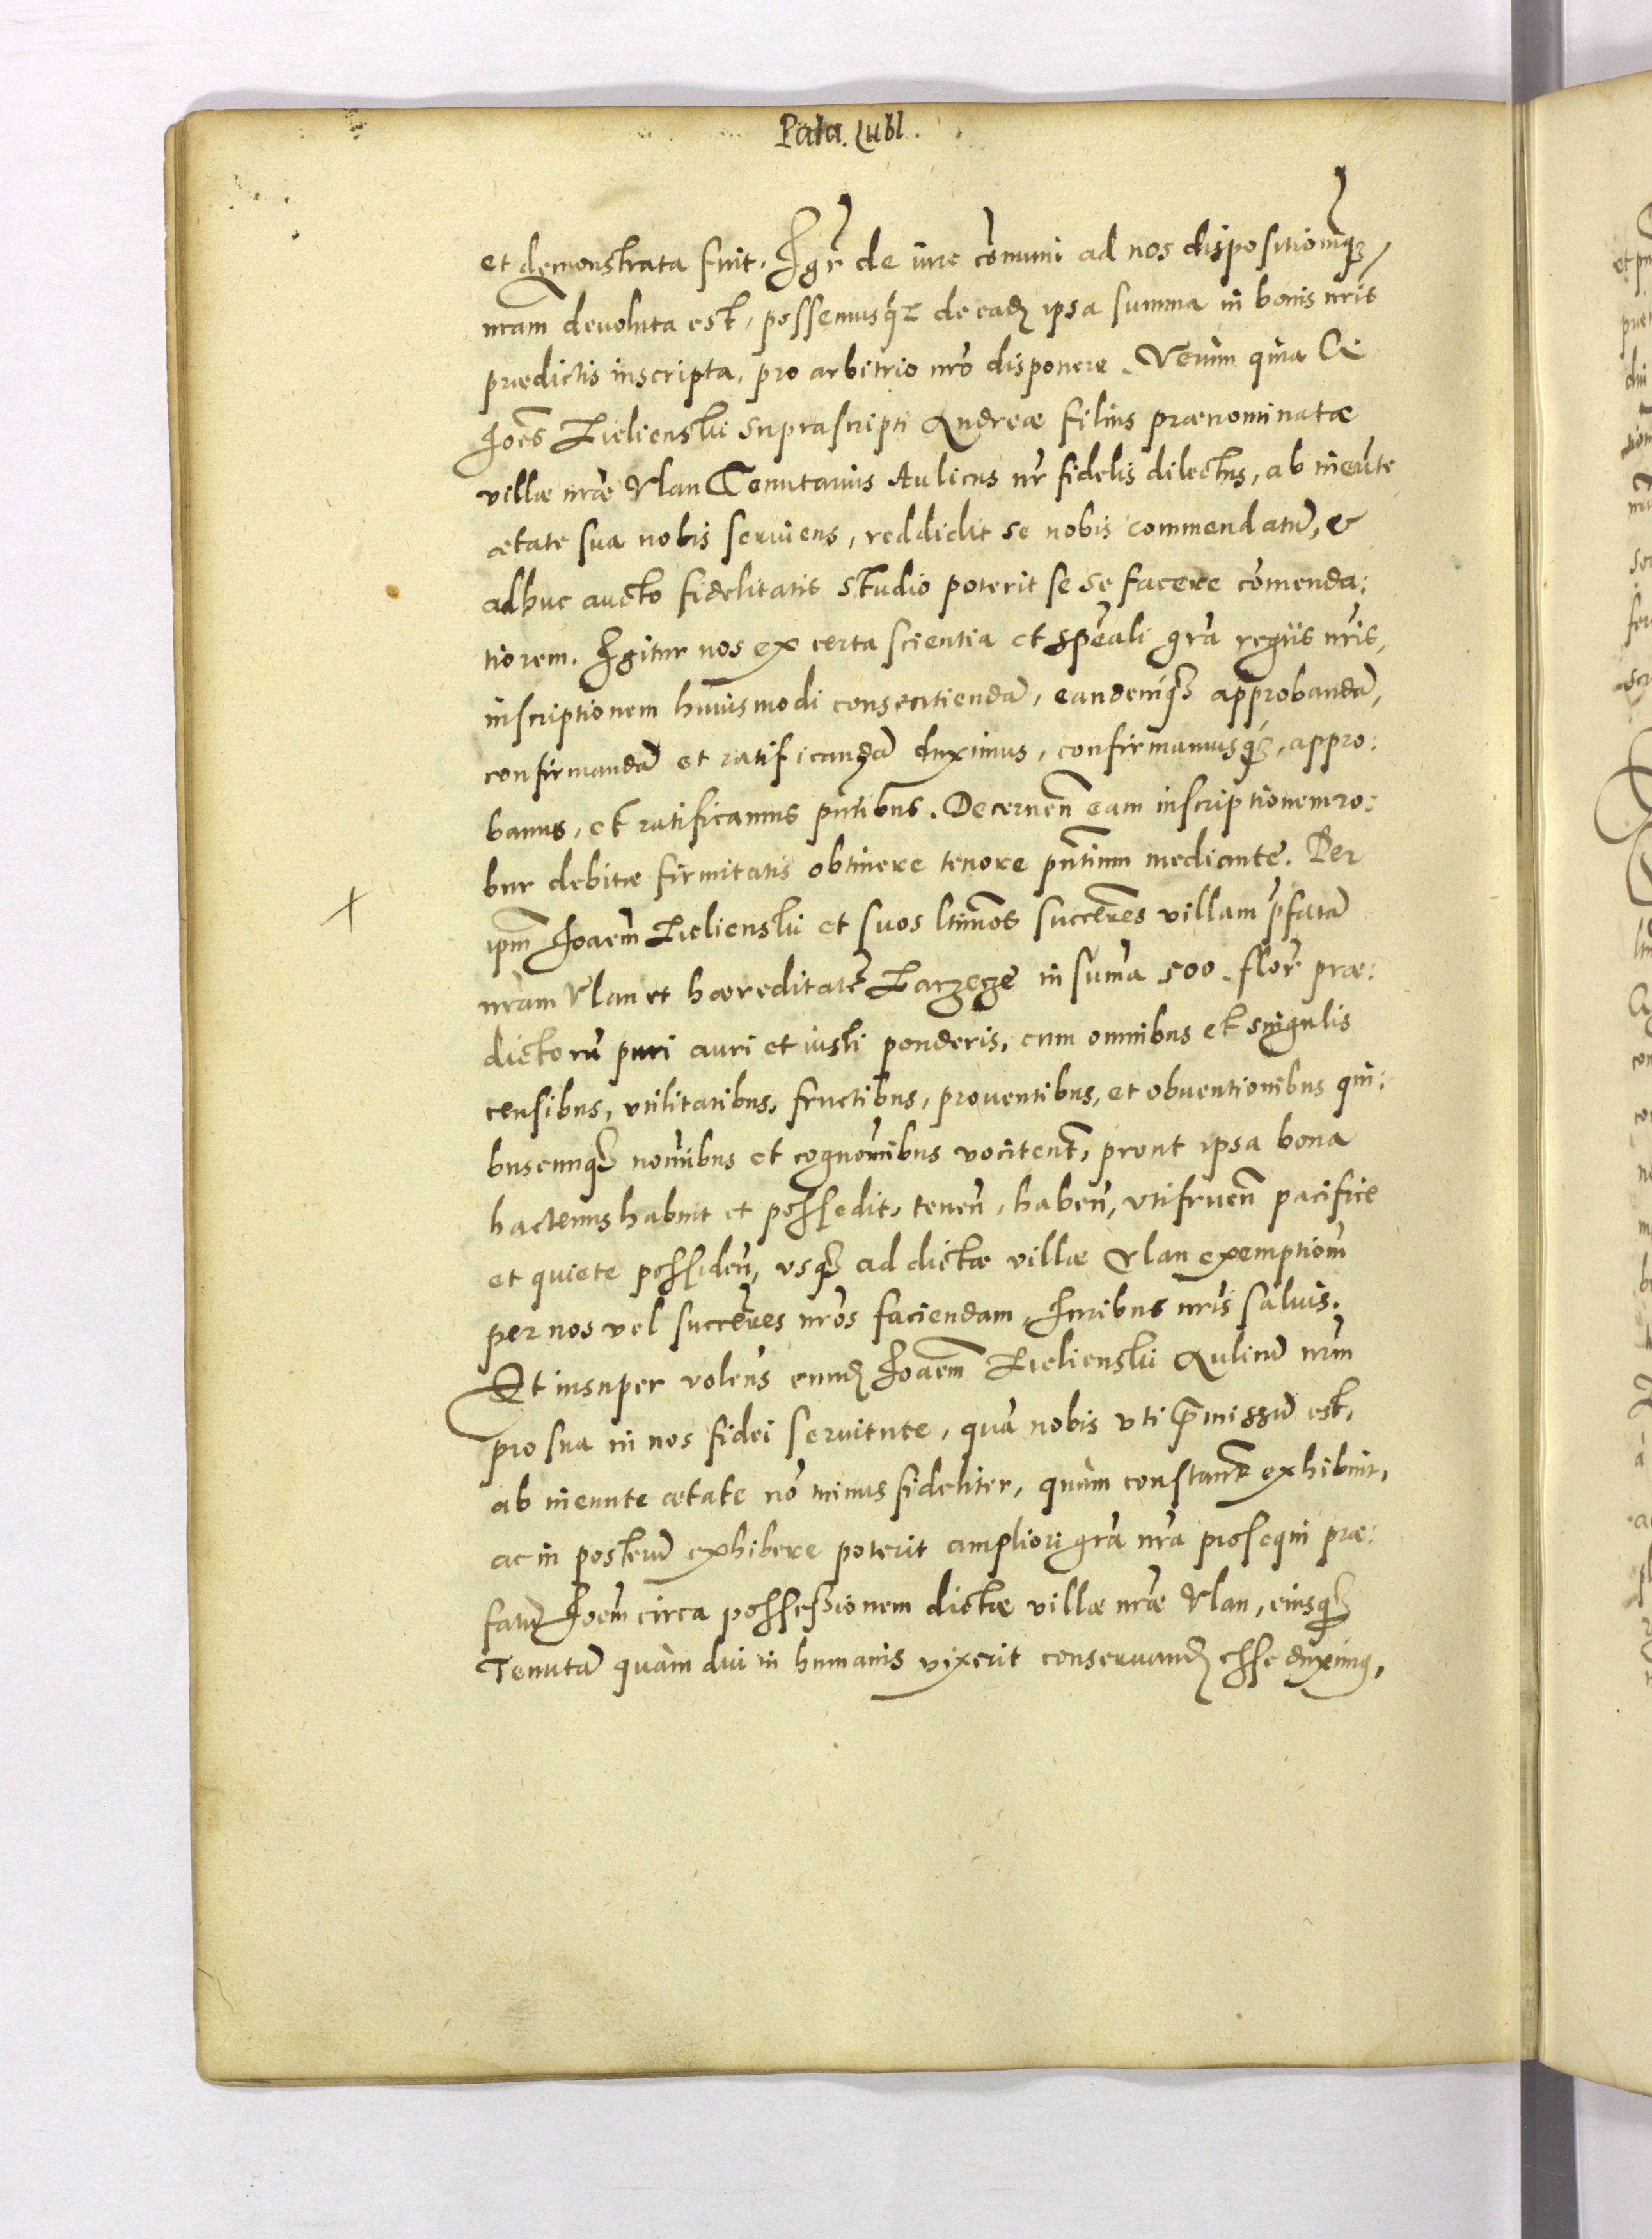 Pala. Lubl.
et demonstrata fuit. Igr̃ de iure com̃uni ad nos dispositiom̃qꝫ
nr̃am deuoluta est, possemusqꝫ de eadꝫ ipsa summa in bonis nr̃is
prædictis inscripta, pro arbitrio nr̃o disponere. Verùm quia Gͤ
Joẽs Lielienski suprascripti Andreæ filius prænominatæ
villæ nr̃æ Vlan Tenutarius Aulicus nr̃ fidelis dilectus, ab ineũte
ætate sua nobis seruiens, reddidit se nobis commendatũ, &
adhuc aucto fidelitatis studio poterit se se facere com̃enda:
tiorem. Igitur nos ex certa scientia et spẽali gr̃a regiis nr̃is,
inscriptionem huiusmodi consentiendã, eandemqꝫ approbandã,
confirmandã et ratificandã duximus, confirmamusqꝫ, appro:
bamus, et ratificamus pñtibus. Decernen̄ eam inscriptionem ro:
bur debitæ firmitatis obtinere tenore pñtium mediante. Per
ipm̃ Joaem̃ Lielienski et suos ltimõs succẽres villam p̃fatã
nr̃am Vlan et hæreditatẽ Larzeze in sum̃a 500. flor̃ præ:
dictorũ puri auri et iusti ponderis, cum omnibus et singulis
censibus, vtilitatibus, fructibus, prouentibus, et obuentionibus qui:
buscunqꝫ nom̃ibus et cognom̃ibus vocitent̃, prout ipsa bona
hactenus habuit et possedit, tenen̄, haben̄, vtifruen̄ pacifice
et quiete possiden̄, vsqꝫ ad dictæ villæ Vlan exemptiom̃
per nos vel succẽres nr̃os faciendam, Iuribus nr̃is saluis.
Et insuper volen̄s eundꝫ Joaem̃ Lielienski Aulicũ nr̃m
pro sua in nos fidei seruitute, quã nobis vti p̃missũ est,
ab ineunte ætate nõ minus fideliter, quàm constant̃ exhibuit,
ac in posterũ exhibere poterit ampliori gr̃a nr̃a prosequi præ:
fatũ Joem̃ circa possessionem dictæ villæ nr̃æ Vlan, eiusqꝫ
Tenutã quàm diu in humanis vixerit conseruandꝫ esse duximꝰ,